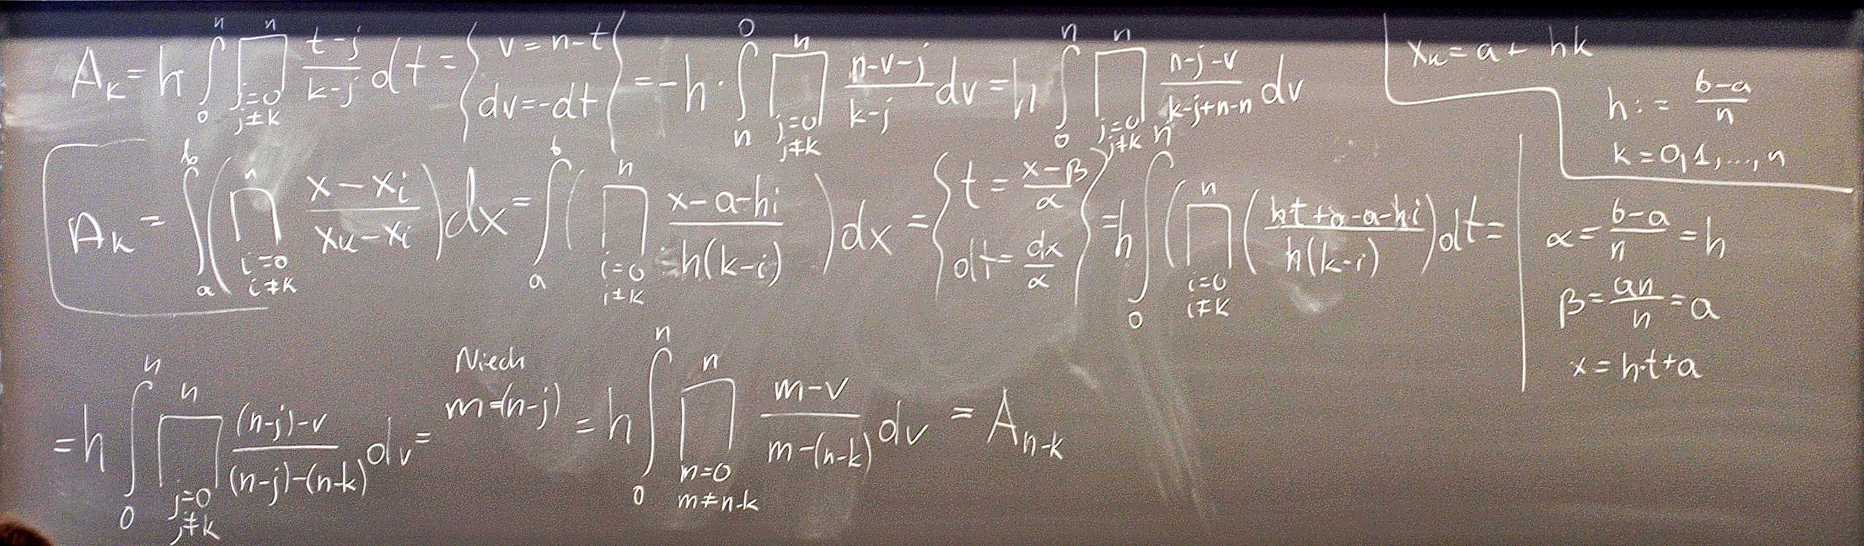 A_k = h ∫_0^n ∏_{j=0, j≠k}^n (t-j)/(k-j) dt = { v = n-t, dv = -dt } = -h · ∫_n^0 ∏_{j=0, j≠k}^n (n-v-j)/(k-j) dv = h ∫_0^n ∏_{j=0, j≠k}^n (n-j-v)/(k-j+n-n) dv
x_k = a + hk
h := (b-a)/n
k = 0,1,...,n
A_k = ∫_a^b ( ∏_{i=0, i≠k}^n (x-x_i)/(x_k-x_i) ) dx = ∫_a^b ( ∏_{i=0, i≠k}^n (x-a-hi)/(h(k-i)) ) dx = { t = (x-β)/α, dt = dx/α } = h ∫_0^n ( ∏_{i=0, i≠k}^n ( (ht+a-a-hi)/(h(k-i)) ) dt =
α = (b-a)/n = h
β = an/n = a
x = h·t+a
= h ∫_0^n ∏_{j=0, j≠k}^n ((n-j)-v)/((n-j)-(n-k)) dv = Niech m=(n-j) = h ∫_0^n ∏_{m=0, m≠n-k}^n (m-v)/(m-(n-k)) dv = A_{n-k}